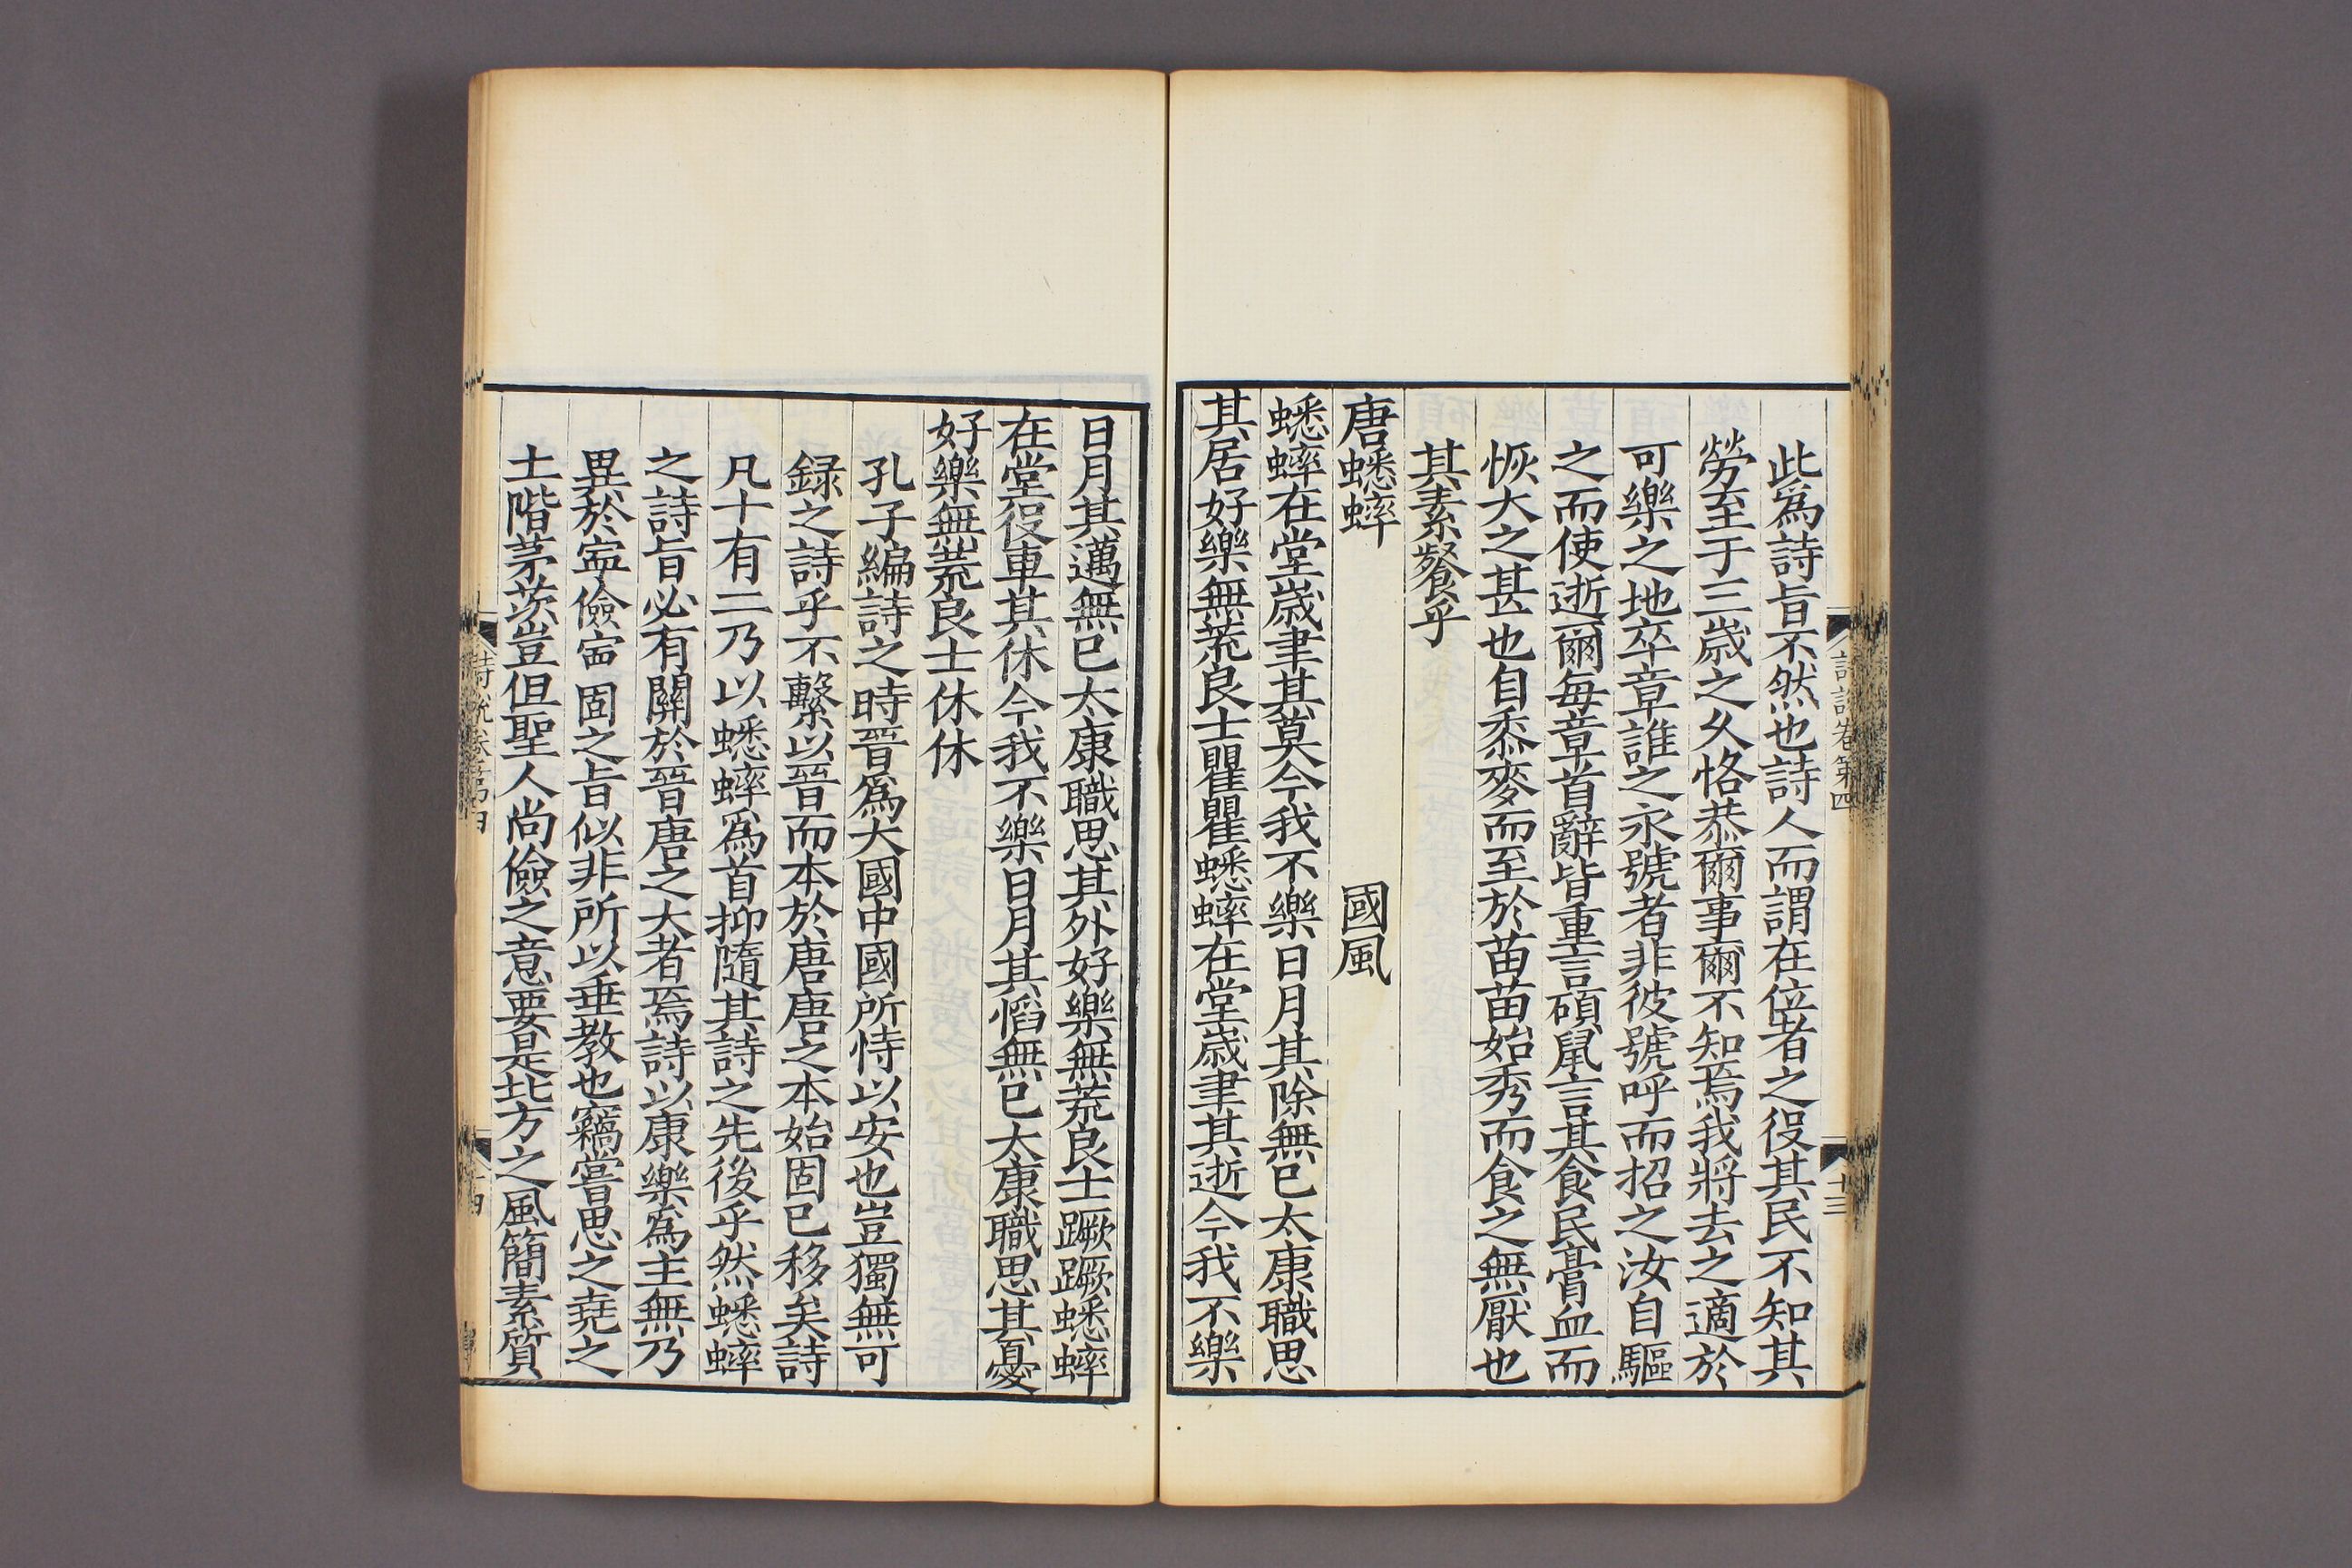 此爲詩旨不然也詩人而謂在位者之役其民不知其
勞至于三歳之久恪恭爾事爾不知焉我將去之適於
可樂之地卒章誰之永號者非彼號呼而招之汝自驅
之而使逝爾每章首辭皆重言碩鼠言其食民膏血而
恢大之甚也自黍麥而至於苗苗始秀而食之無厭也
其素餐乎
唐蟋蟀 國風
蟋蟀在堂歳聿其莫今我不樂日月其除無已太康職思
其居好樂無荒良士瞿瞿蟋蟀在堂歳聿其逝今我不樂
日月其邁無已太康職思其外好樂無荒良士蹶蹶蟋蟀
在堂役車其休今我不樂日月其慆無已太康職思其憂
好樂無荒良士休休
孔子編詩之時晉爲大國中國所恃以安也豈獨無可
録之詩乎不繫以晉而本於唐唐之本始固已移矣詩
凡十有二乃以蟋蟀爲首抑隨其詩之先後乎然蟋蟀
之詩旨必有關於晉唐之大者焉詩以康樂爲主無乃
異於寍儉固之旨似非所以垂教也竊嘗思之堯之
土階茅茨豈但聖人尚儉之意要是北方之風簡素質
詩說卷第四
十三
詩說卷第四
十四